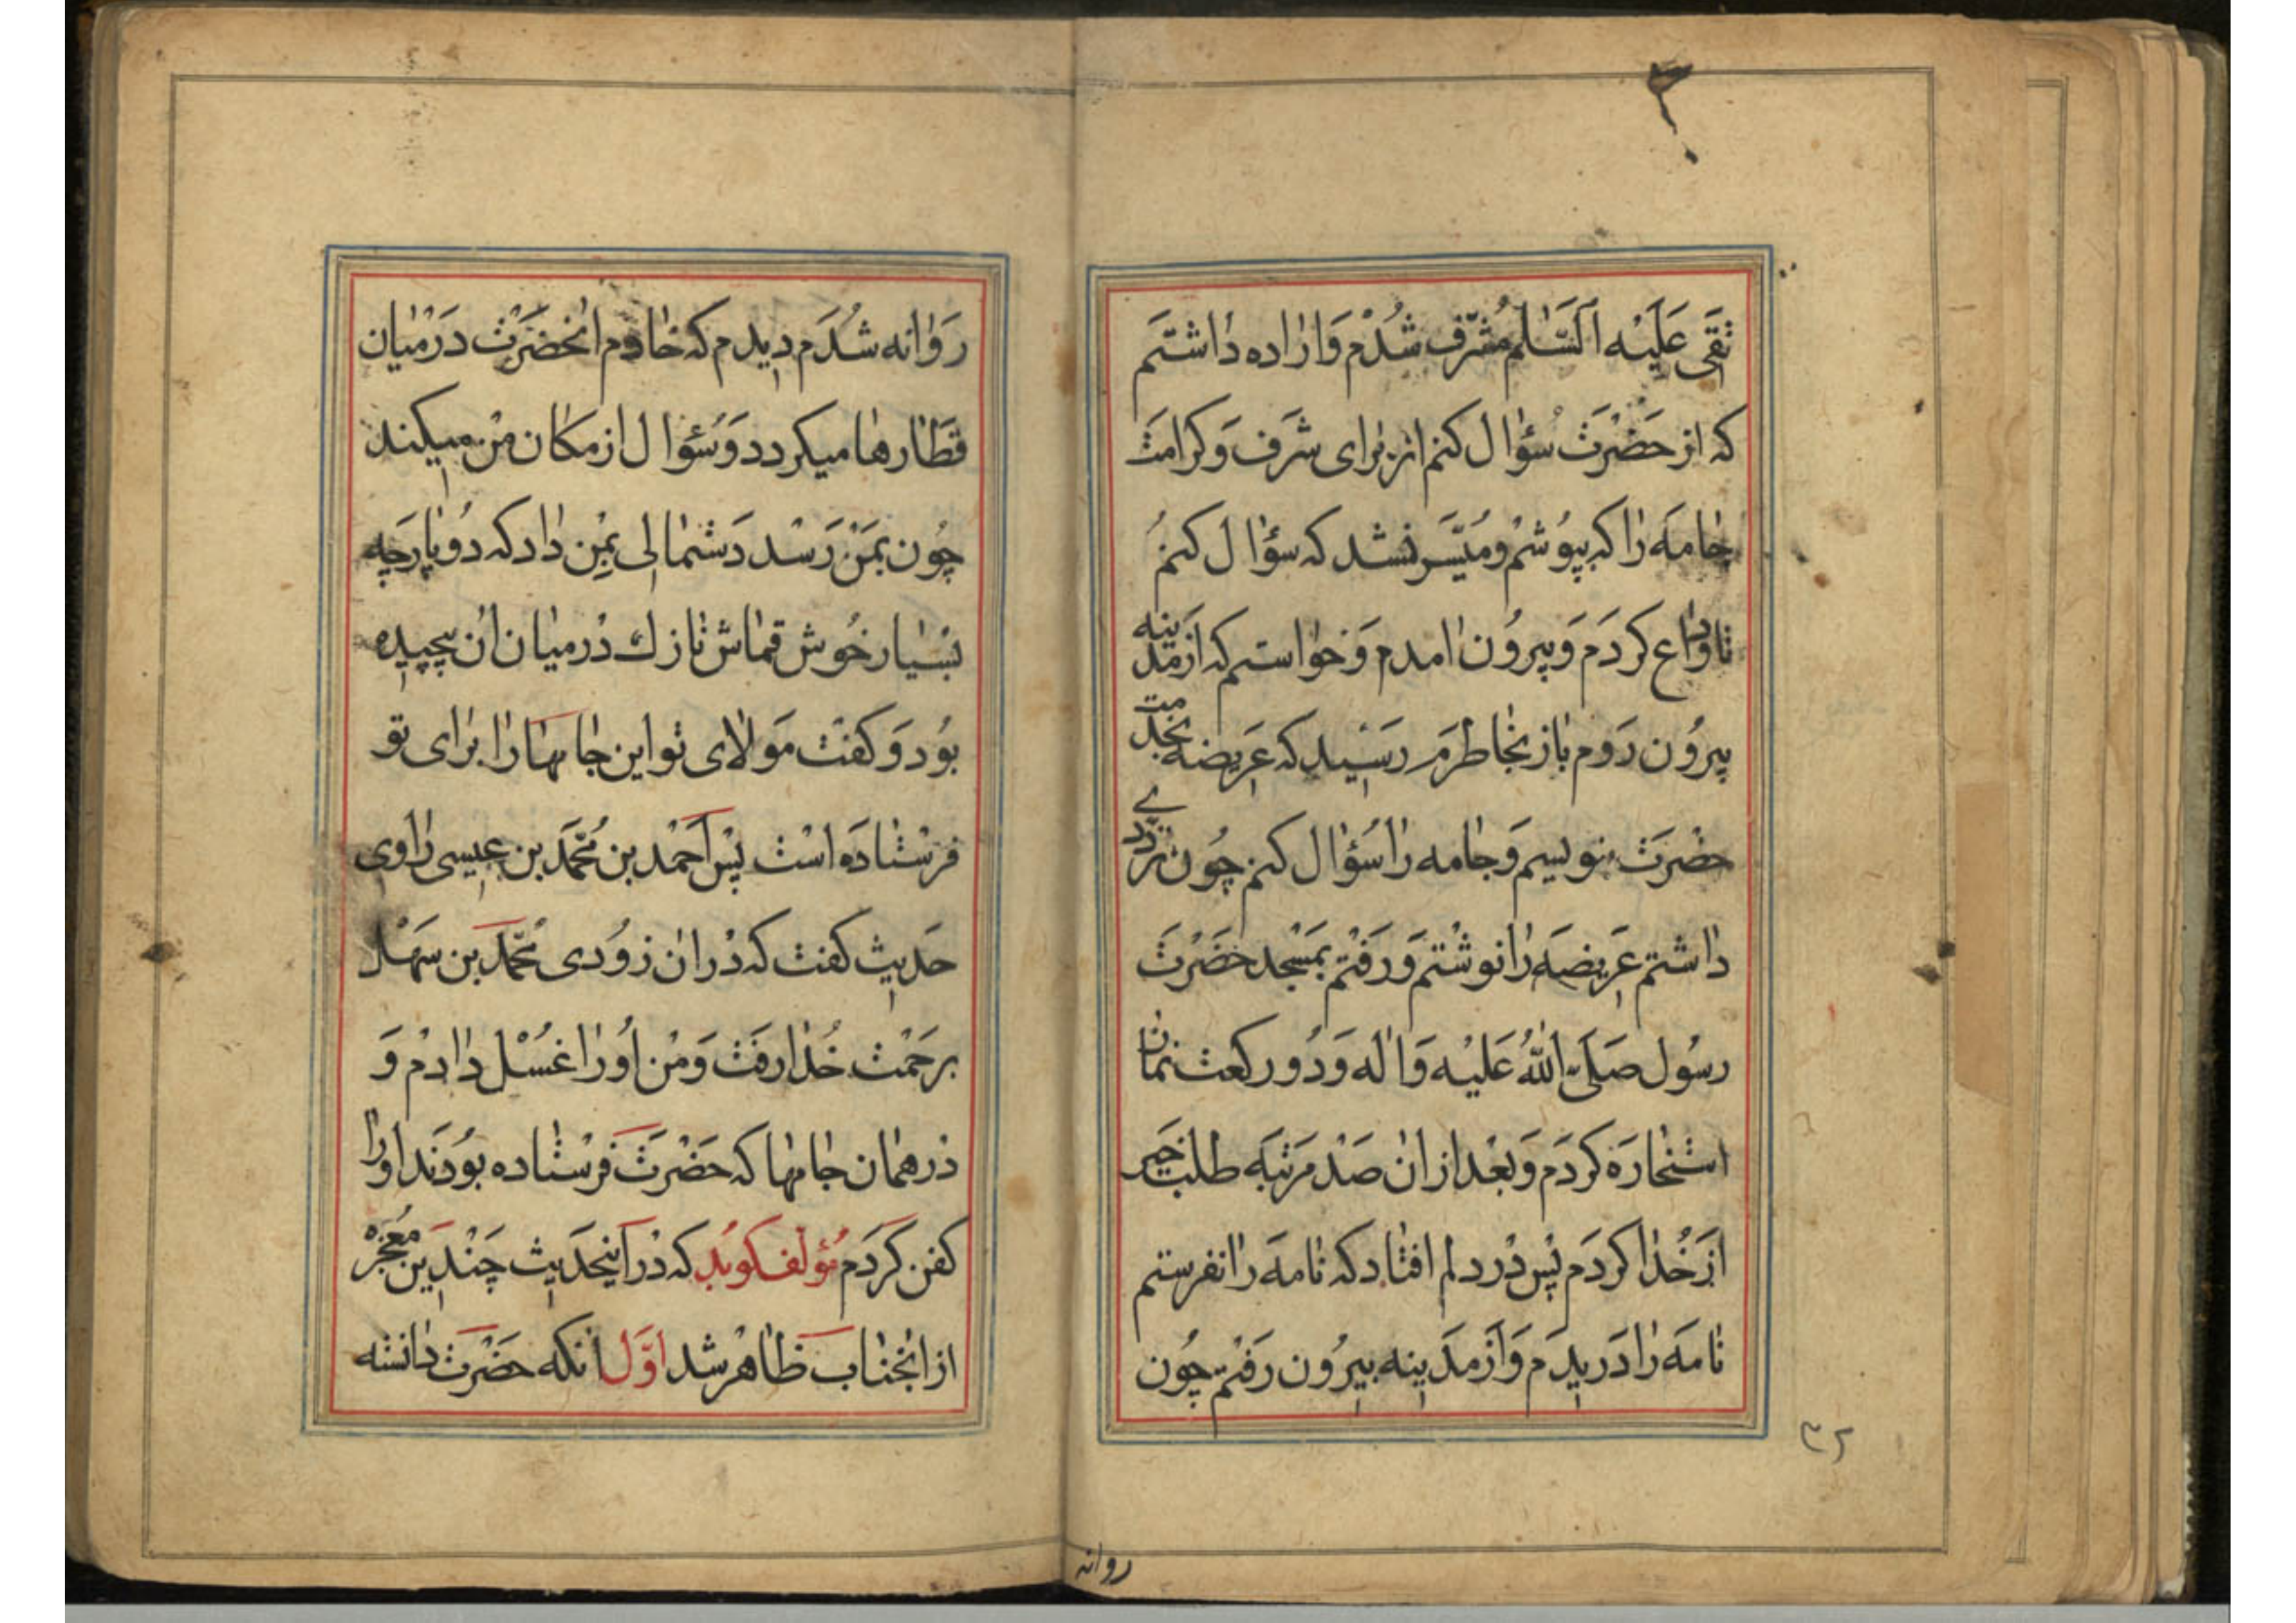 تقی علیه السّلام مشرّف شدم و اراده داشتم
که از حضرت سؤال کنم از برای شرف و کرامت
جامه را که بپوشم و میّسر نشد که سؤال کنم
تا وداع کردم و بیرون امدم و خواستم که از مدینه
بیرون روم باز بخاطرم رسید که عریضه بخدمت
حضرت بنویسم و جامه را سؤال کنم چون
داشتم عریضه را نوشتم و رفتم بمسجد حضرت
رسول صلّی الله علیه و اله و دو رکعت نماز
استخاره کردم و بعد از ان صد مرتبه طلب خیر
از خدا کردم پس در دلم افتاد که نامه را نفرستم
نامه را دریدم و از مدینه بیرون رفتم چون
۳۲
روانه
روانه شدم دیدم که خادم انحضرت در میان
قطارها میکردد و سؤال از مکان من میکند
چون بمن رسد دستمالی بمن داد که دو پارچه
بسیار خوش قماش نازك در میان ان پیچیده
بود و کفت مولای تو این جامها را برای تو
فرستاده است پس احمد بن محمّد بن عیسی راوی
حدیث کفت که در ان زودی محمّد بن سهل
برحمت خدا رفت و من او را غسل دادم و
در همان جامها که حضرت فرستاده بودند او را
کفن کردم مؤلف کوید که در اینحدیث چندین معجزه
از انجناب ظاهر شد اوّل انکه حضرت دانسته